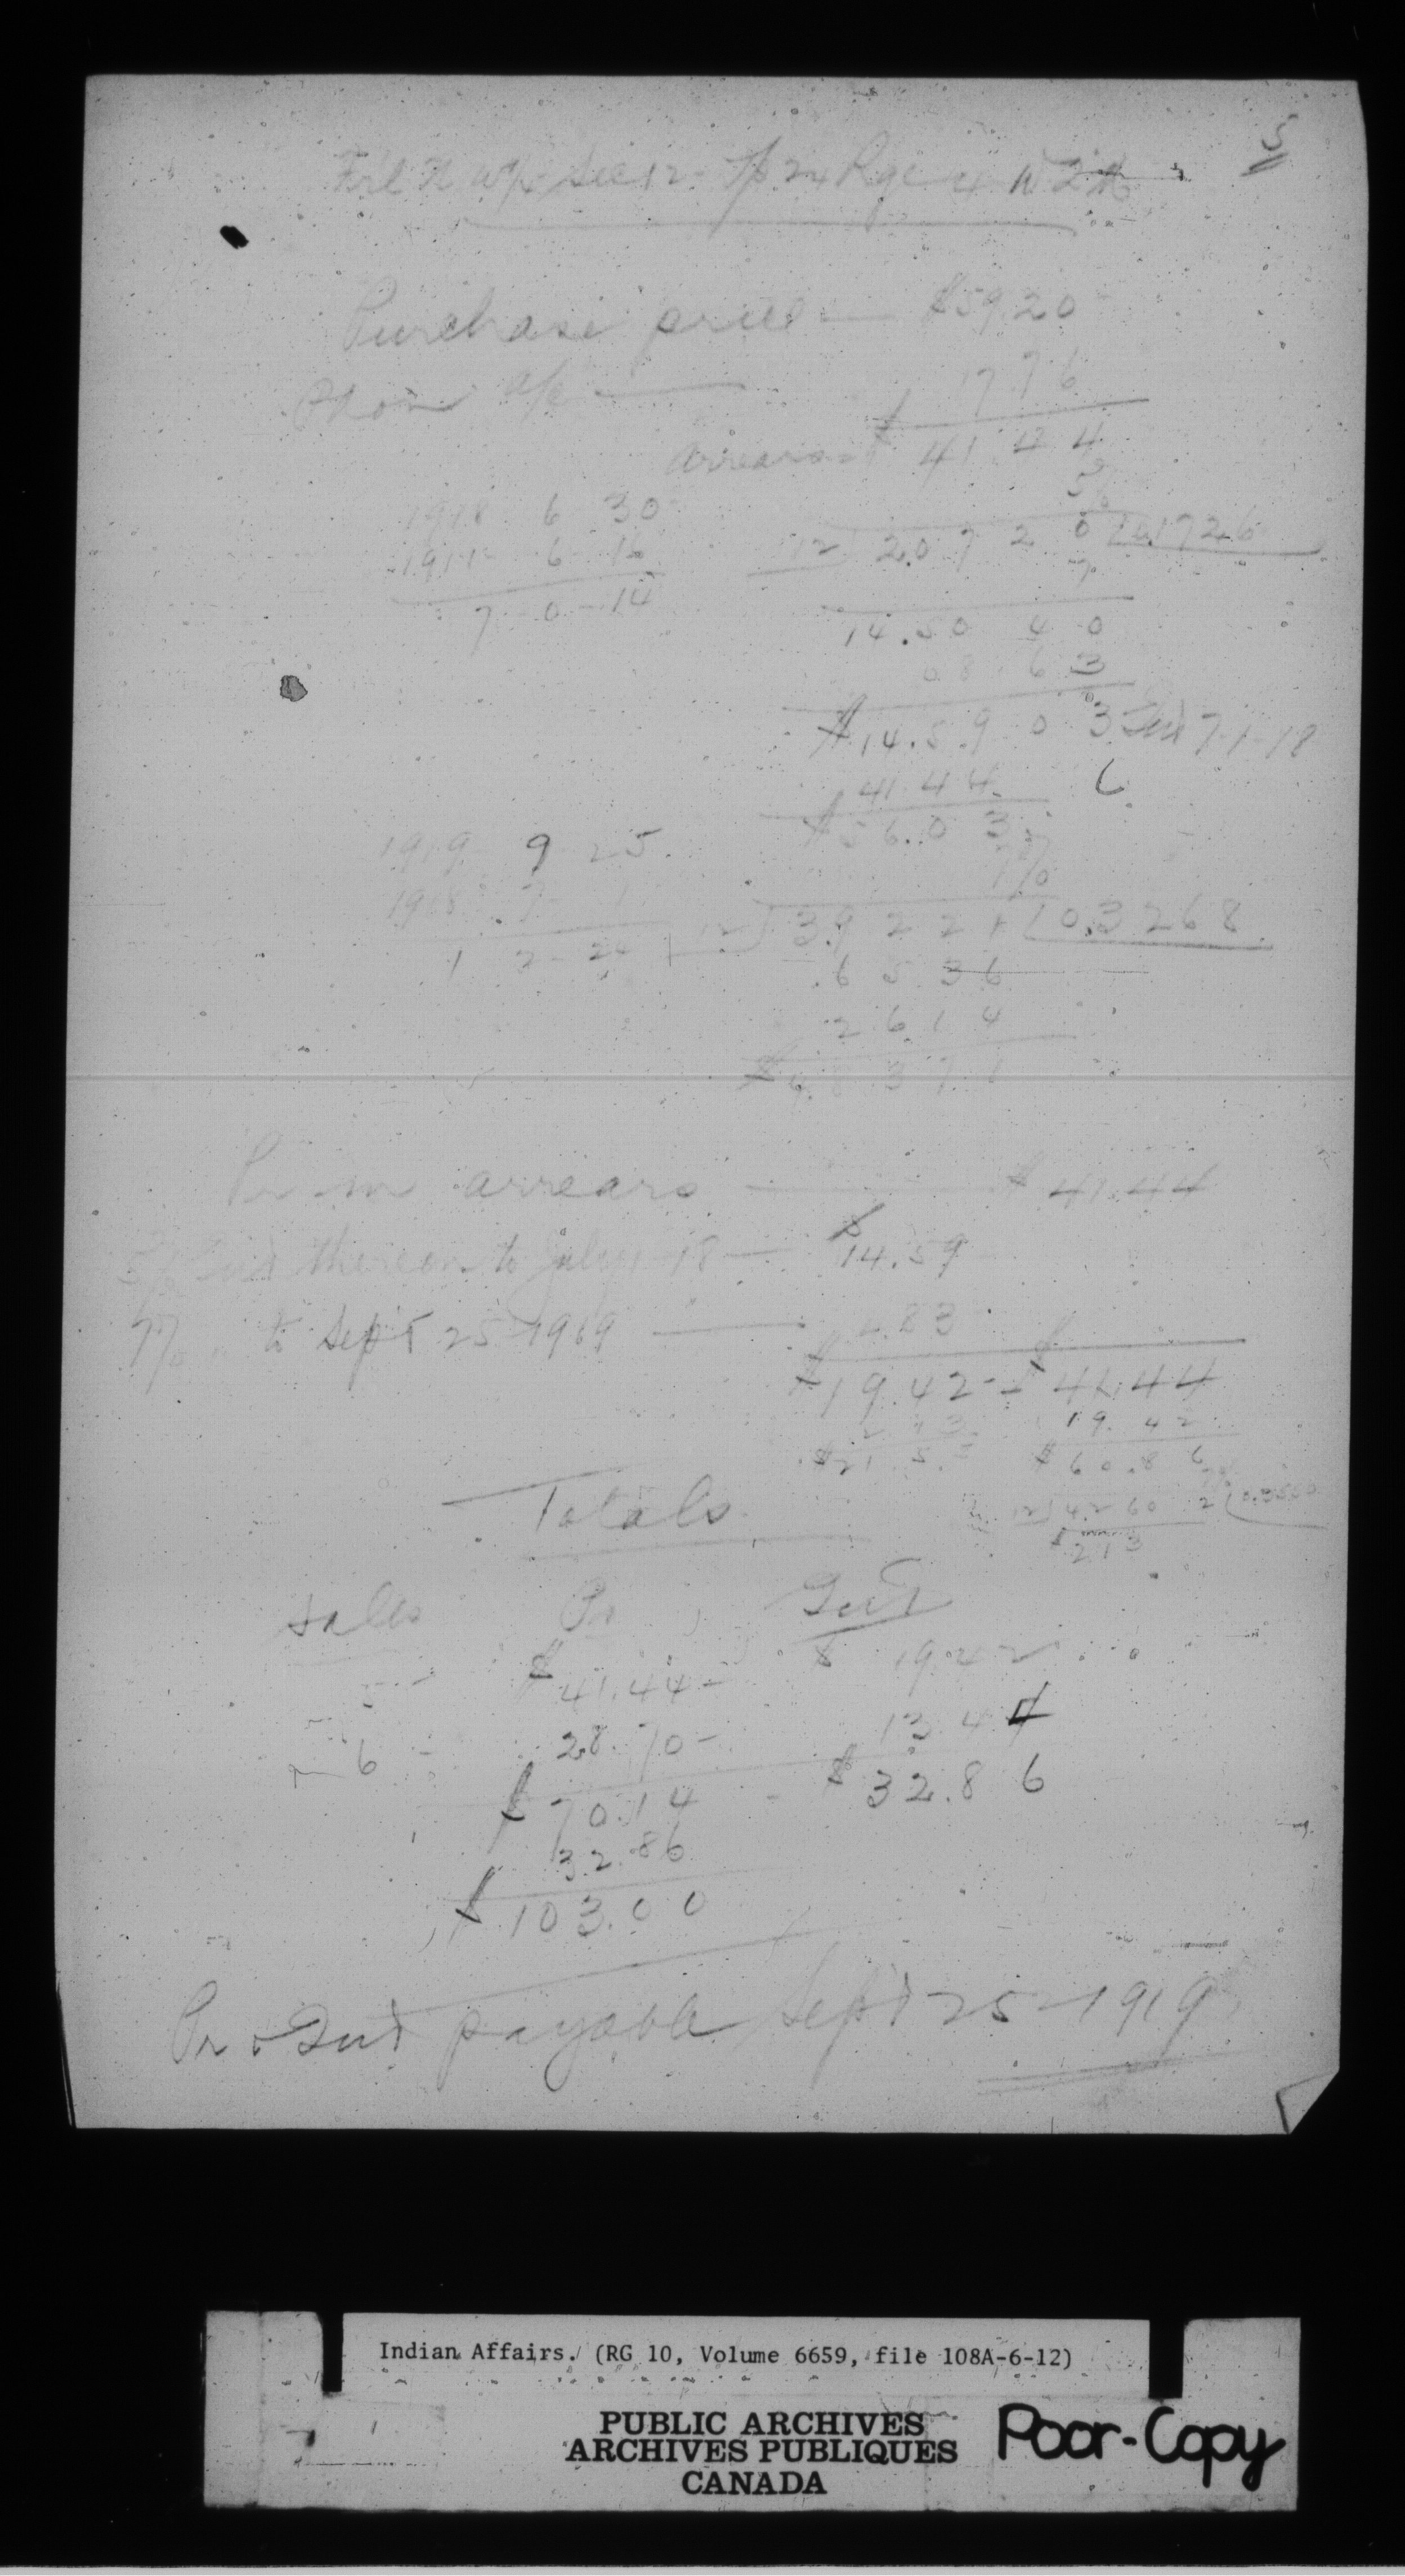 5
Frl N W¼ Sec 12 - Tp 24 Rge 4 W 2 M
Purchase price — $59.20
Paid on a/c — 17 76
Arrears = $41.44
5%
1918 6 30
1911 6 16
7 - 0 - 14
12 ) 2.0 7 2 0 ( 0.1726
7
14.50 4 0
08 63
$14.59 0 3 Int 7-1-18
41.44 6
$56.03
7%
1919 9 25
1918 7 1
1 2 24
12 ) 3.9 2 2 1 ( 0.3268
.6 5 3 6
2 6 1 4
$4.8 3 7 1
Pr in arrears — $41.44
5% Int thereon to July 1 - 18 — $14.59
7% " to Sept 25 - 1919 — 4.83
$19.42 - $41.44
2.13 19.42
$21.5 5 $60.86
7%
12 ) 4.260 2 ( 0.3550
$2 1 3
Totals
Sales Pr Int
5 - $41.44 - $19.42
" 6 - 28.70 - 13.44
$70.14 - $32.86
32.86
$103.00
Pr & Int payable Sept 25 - 1919
Indian Affairs. (RG 10, Volume 6659, file 108A-6-12)
PUBLIC ARCHIVES
ARCHIVES PUBLIQUES
CANADA
Poor-Copy